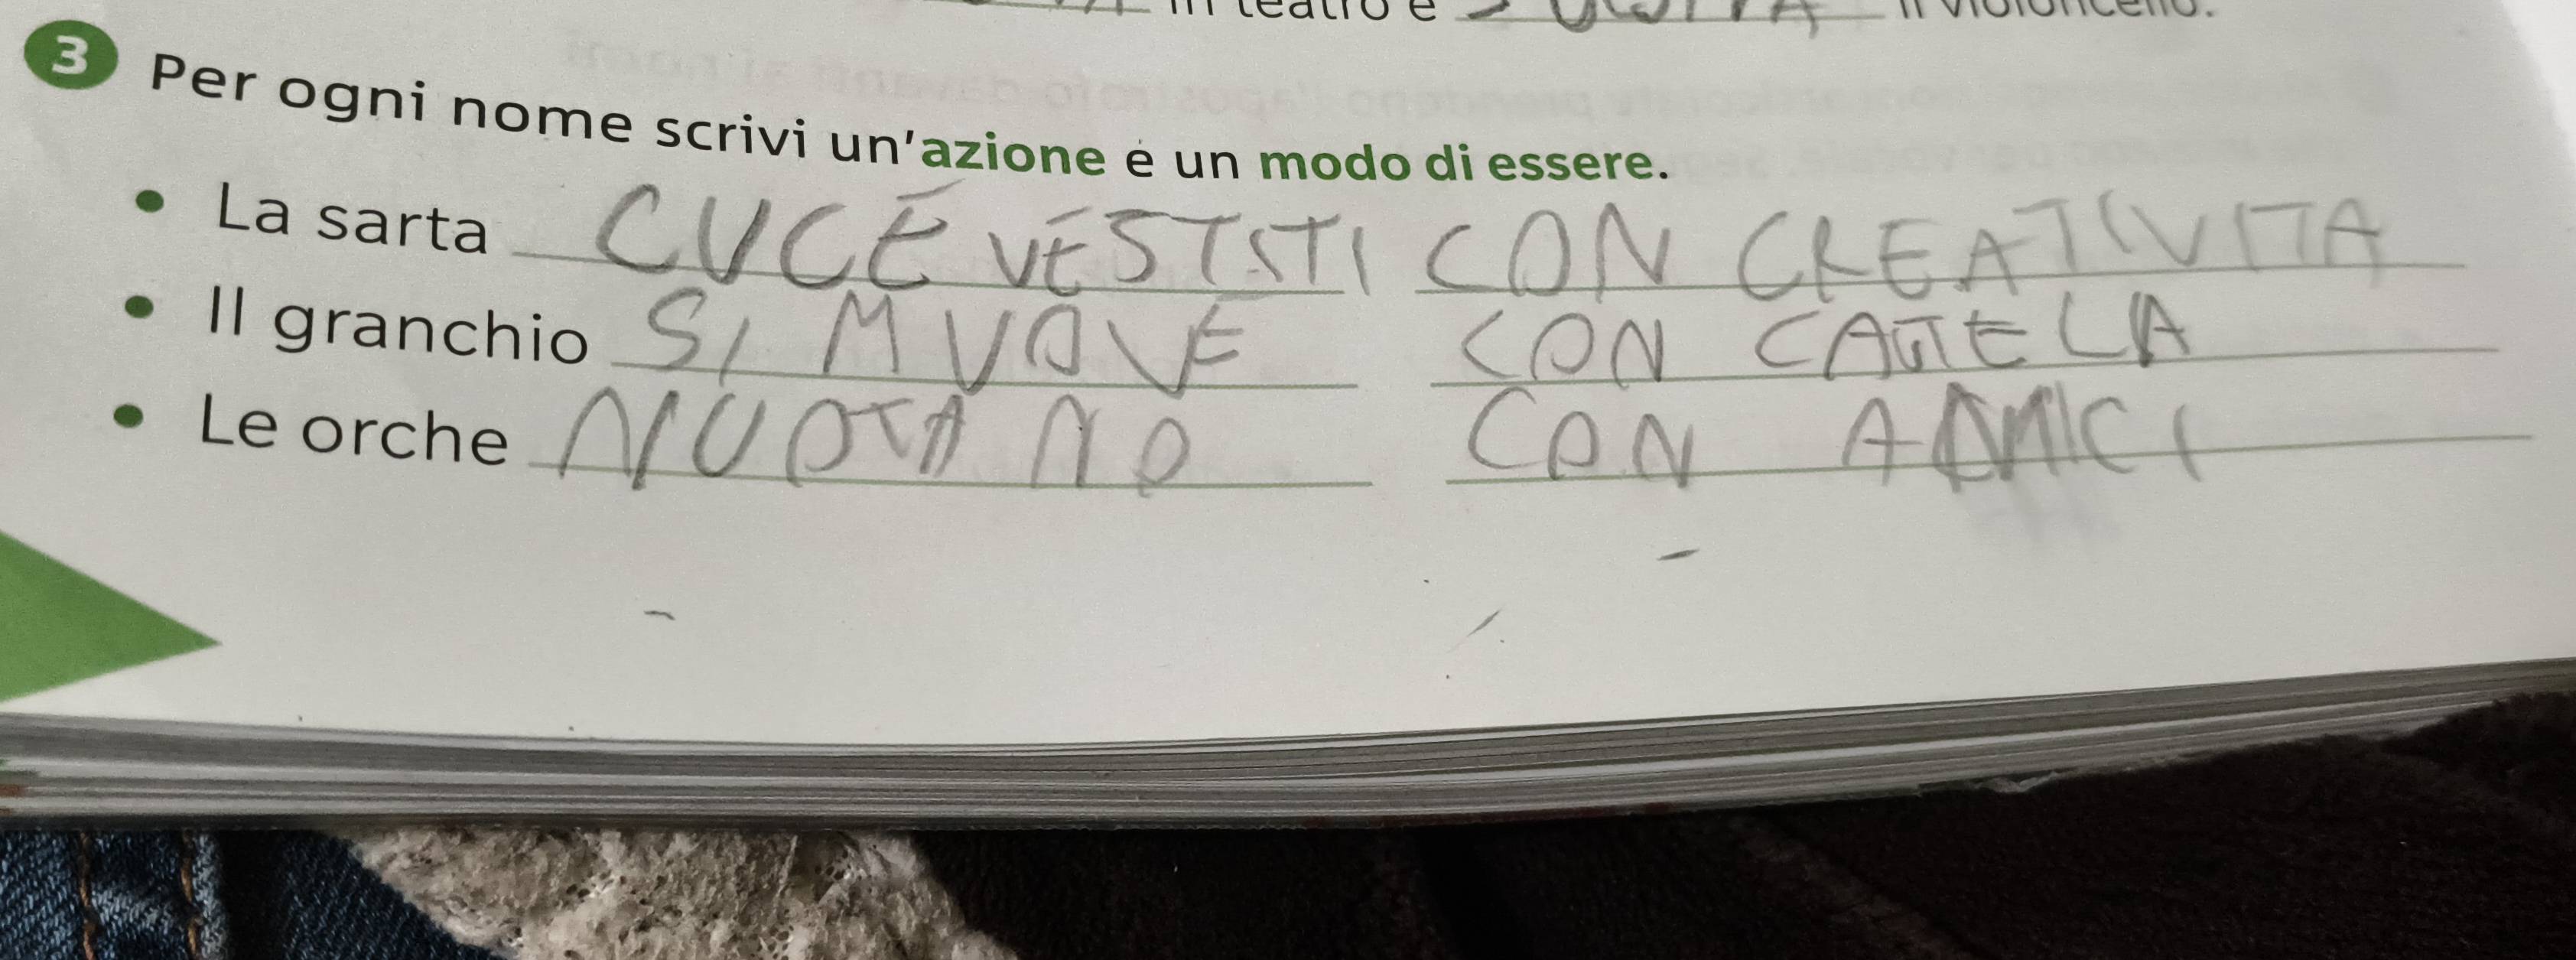 in teatro e SUONA il violoncello.
3 Per ogni nome scrivi un'azione e un modo di essere.
• La sarta CUCE VESTITI CON CREATIVITA
• Il granchio SI MUOVE CON CAUTELA
• Le orche NUOTANO CON AMICI